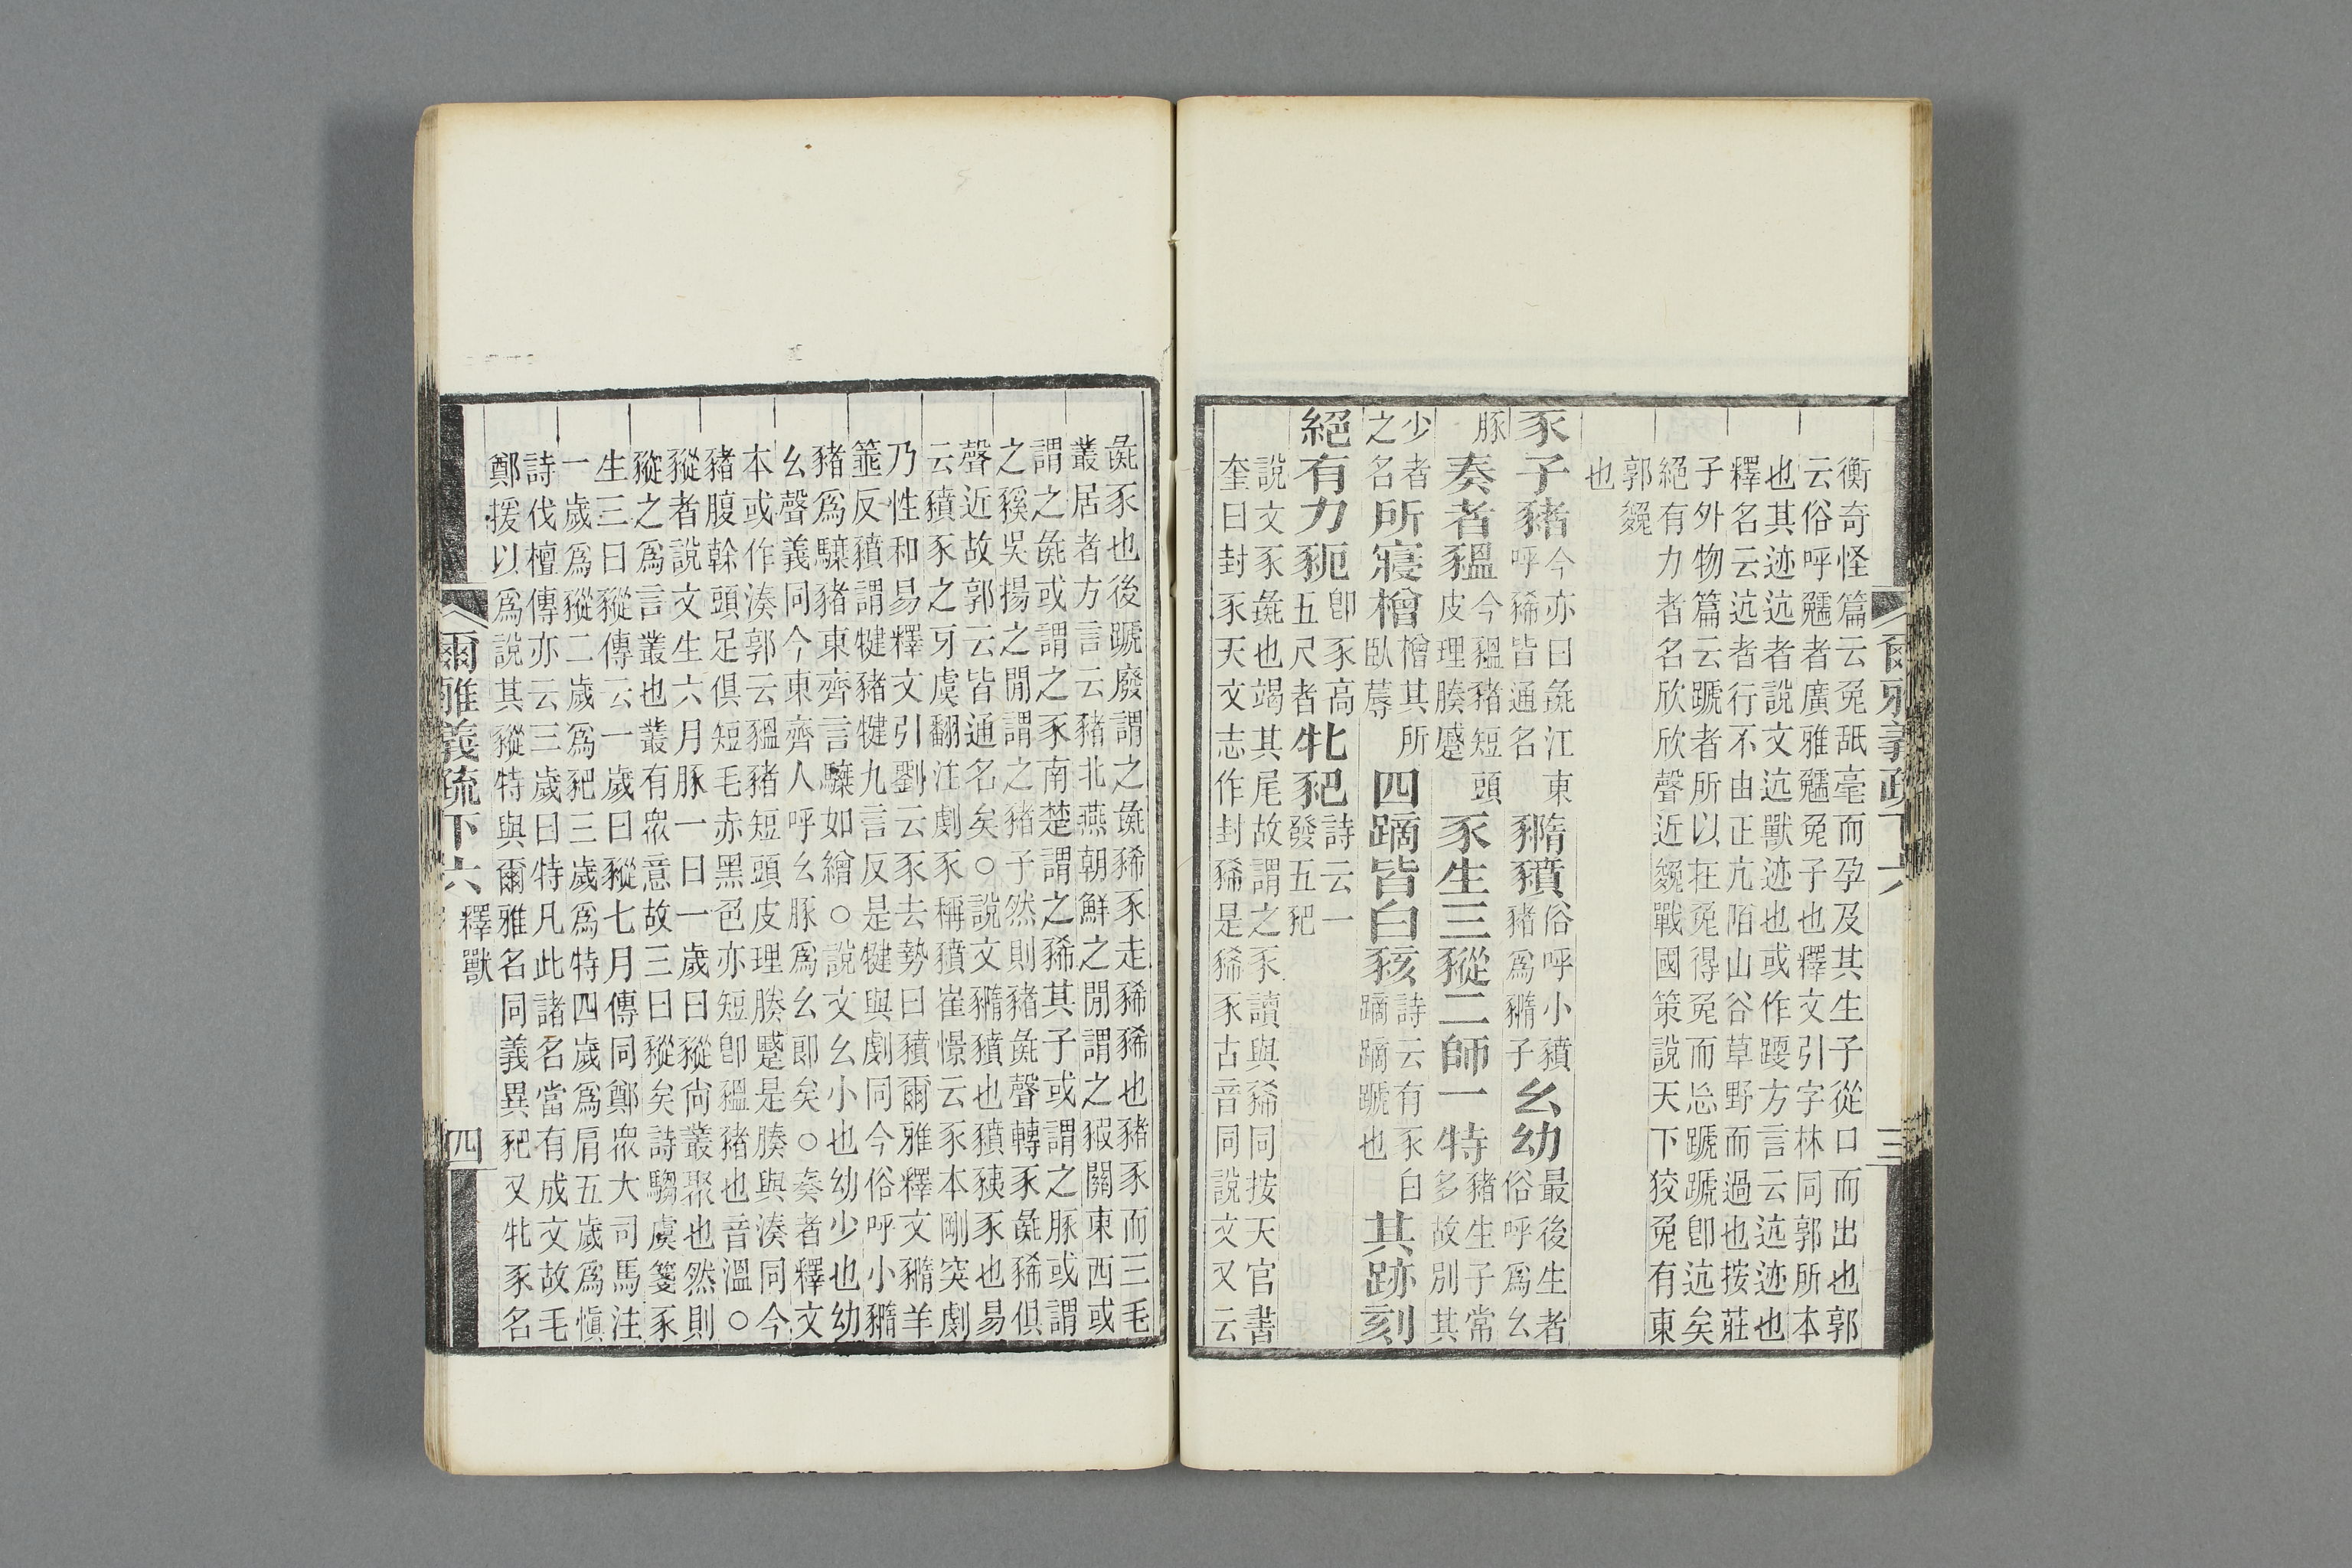 爾雅義疏下六
三
衡奇怪篇云兔舐毫而孕及其生子從口而出也郭
云俗呼䨲者廣雅䨲兔子也釋文引字林同郭所本
也其迹迒者說文迒獸迹也或作䟘方言云迒迹也
釋名云迒者行不由正亢陌山谷草野而過也按莊
子外物篇云蹏者所以在兔得兔而忘蹏蹏卽迒矣
絕有力者名欣欣聲近㕙戰國策說天下狡兔有東
郭㕙
也
豕子豬今亦曰彘江東呼豨皆通名䝐豶俗呼小豶豬爲䝐子幺幼最後生者俗呼爲幺
豚奏者豱今豱豬短頭皮理腠蹙豕生三豵二師一特豬生子常多故別其
少者之名所寢橧橧其所臥蓐四蹢皆白豥詩云有豕白蹢蹢蹏也其跡刻
絕有力豟卽豕高五尺者牝豝詩云一發五豝
說文豕彘也竭其尾故謂之豕讀與豨同按天官書
奎曰封豕天文志作封豨是豨豕古音同說文又云
彘豕也後蹏廢謂之彘豨豕走豨豨也豬豕而三毛
叢居者方言云豬北燕朝鮮之閒謂之豭關東西或
謂之彘或謂之豕南楚謂之豨其子或謂之豚或謂
之豯吳揚之閒謂之豬子然則豬彘聲轉豕彘豨俱
聲近故郭云皆通名矣○說文䝐豶也豶羠豕也易
云豶豕之牙虞翻注劇豕稱豶崔憬云豕本剛突劇
乃性和易釋文引劉云豕去勢曰豶爾雅釋文䝐羊
箠反豶謂犍豬犍九言反是犍與劇同今俗呼小䝐
豬爲驜豬東齊言驜如繒○說文幺小也幼少也幼
幺聲義同今東齊人呼幺豚爲幺卽矣○奏者釋文
本或作湊郭云豱豬短頭皮理腠蹙是腠與湊同今
豬腹幹頭足俱短毛赤黑色亦短卽豱豬也音溫○
豵者說文生六月豚一曰一歲曰豵尙叢聚也然則
豵之爲言叢也叢有衆意故三曰豵矣詩騶虞箋豕
生三曰豵傳云一歲曰豵七月傳同鄭衆大司馬注
一歲爲豵二歲爲豝三歲爲特四歲爲肩五歲爲愼
詩伐檀傳亦云三歲曰特凡此諸名當有成文故毛
鄭援以爲說其豵特與爾雅名同義異豝又牝豕名
爾雅義疏下六 釋獸
四